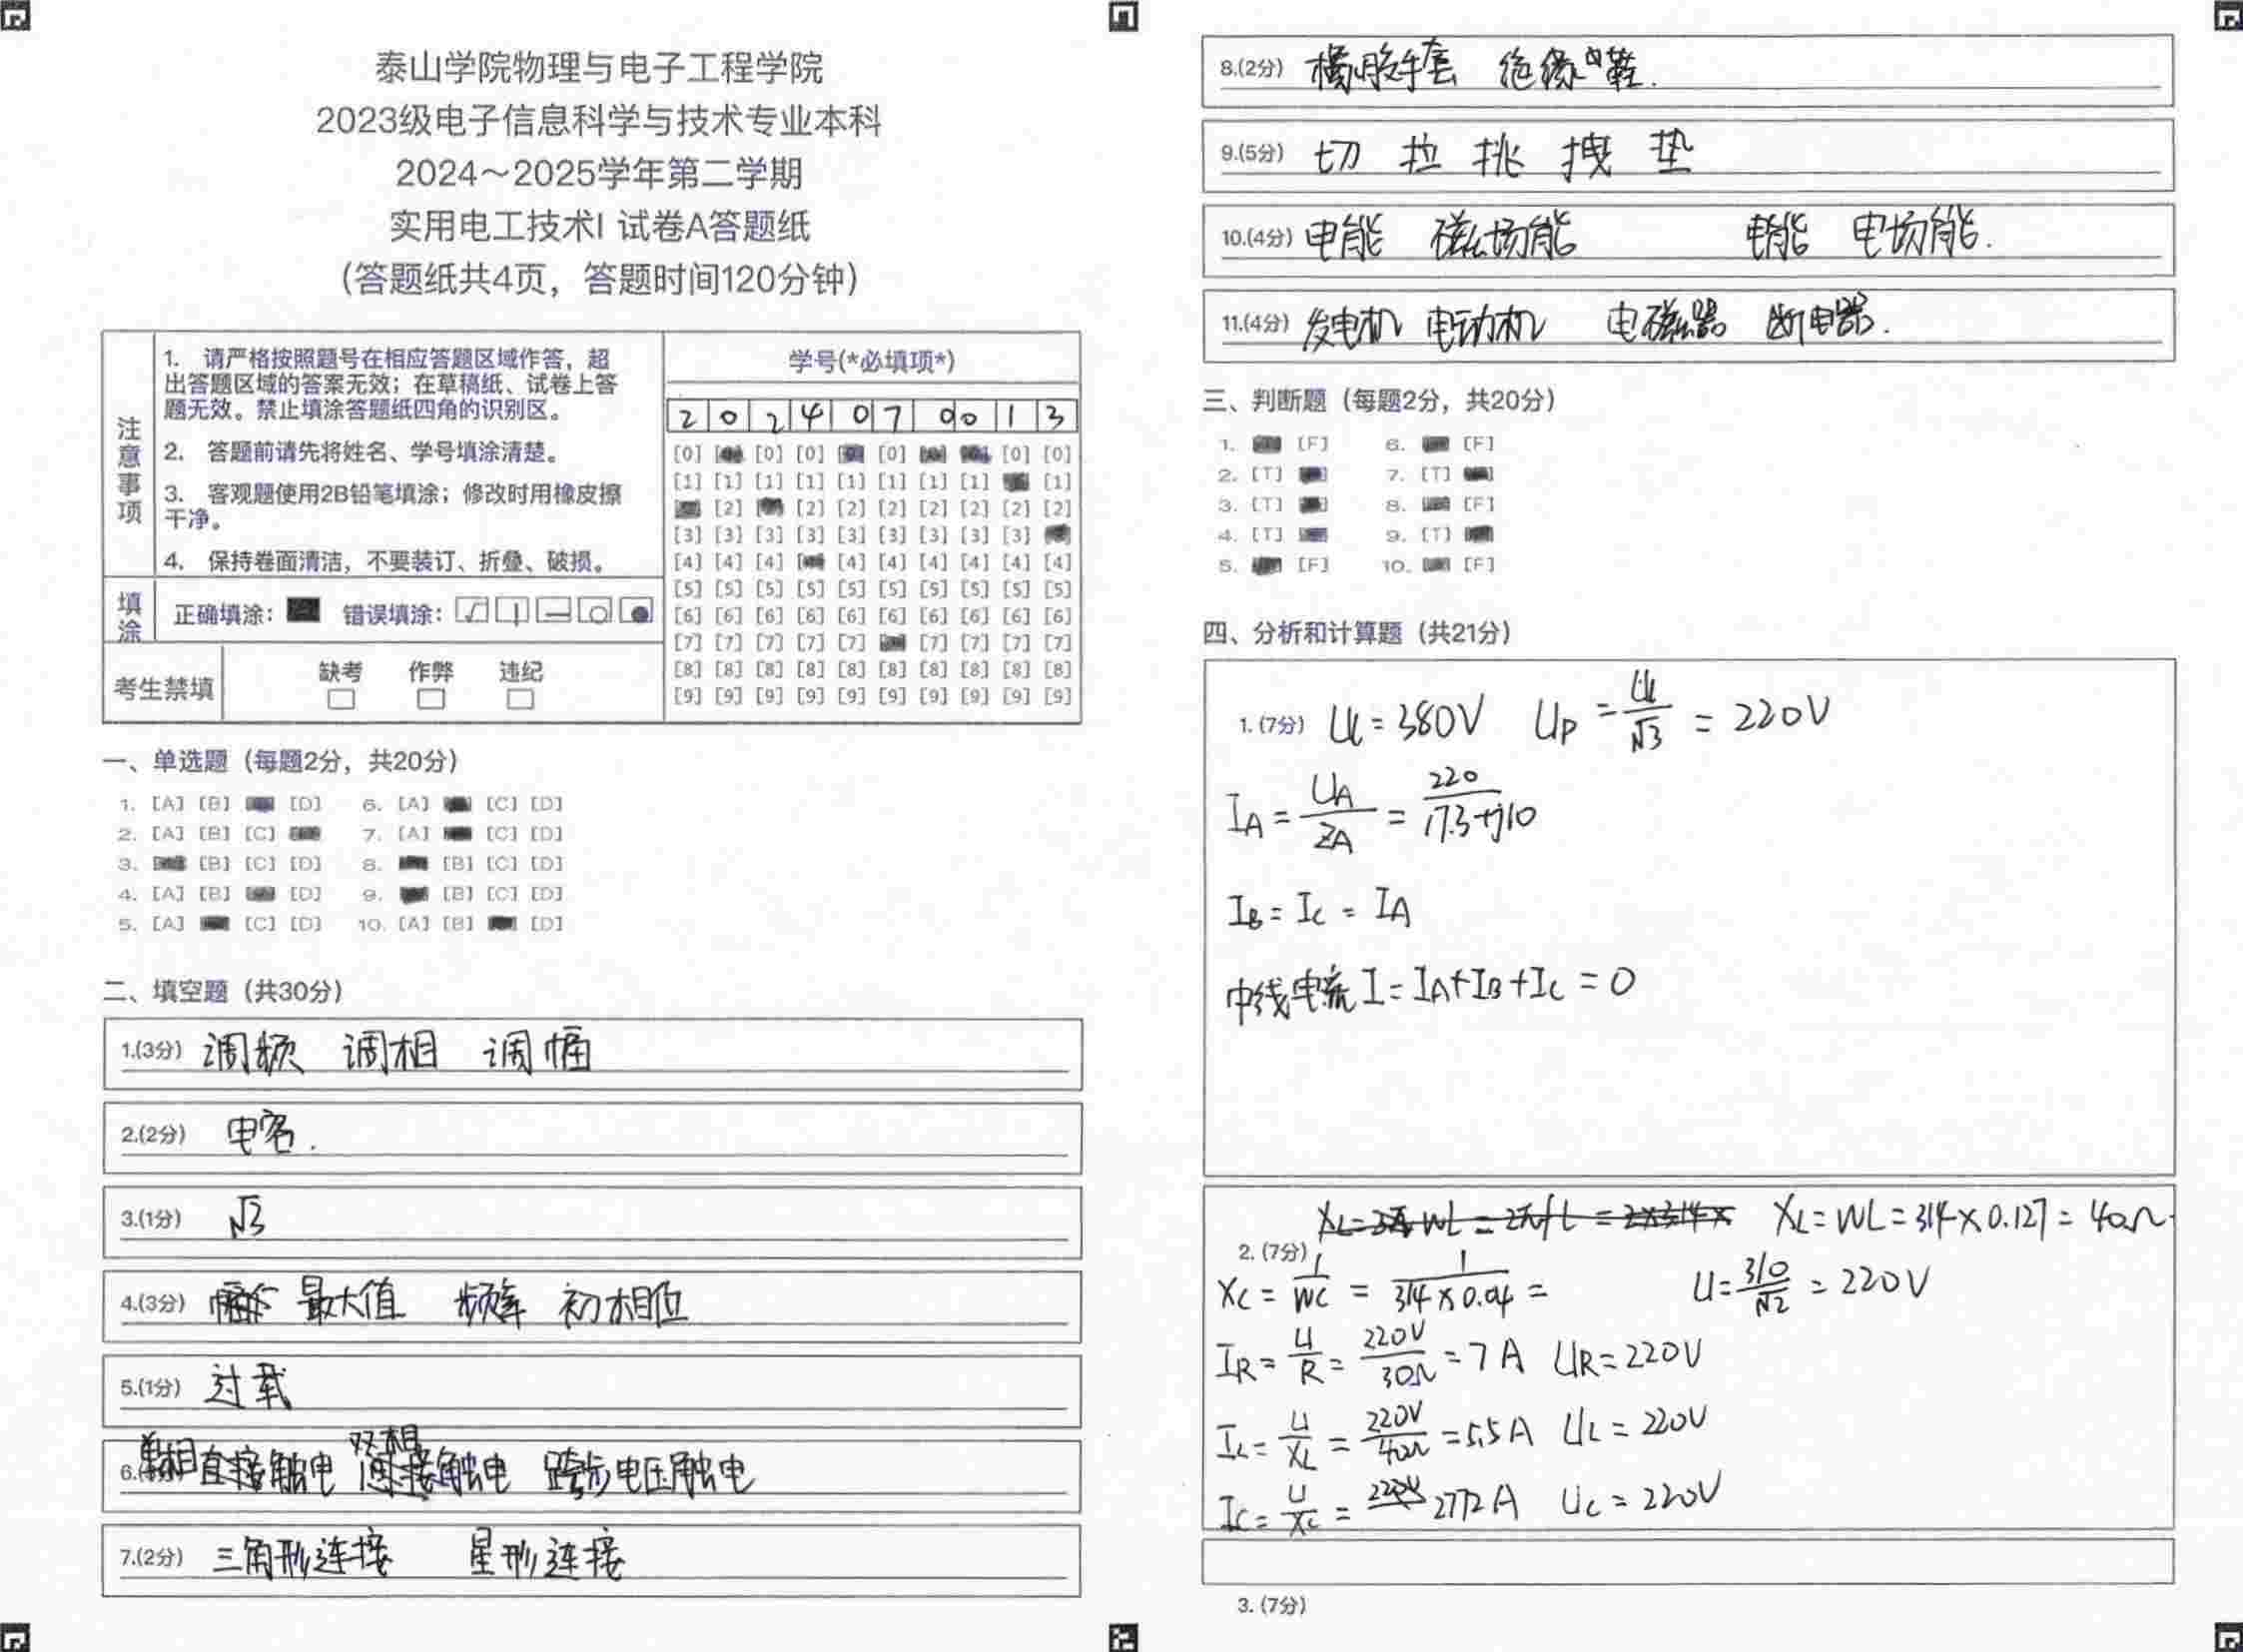 泰山学院物理与电子工程学院
2023级电子信息科学与技术专业本科
2024～2025学年第二学期
实用电工技术I 试卷A答题纸
（答题纸共4页，答题时间120分钟）
注意事项
1. 请严格按照题号在相应答题区域作答，超
出答题区域的答案无效；在草稿纸、试卷上答
题无效。禁止填涂答题纸四角的识别区。
2. 答题前请先将姓名、学号填涂清楚。
3. 客观题使用2B铅笔填涂；修改时用橡皮擦
干净。
4. 保持卷面清洁，不要装订、折叠、破损。
填涂 正确填涂： 错误填涂：
考生禁填 缺考 作弊 违纪
学号(*必填项*)
2 0 2 4 0 7 0 0 1 3
[0] [0] [0] [0] [0] [0]
[1] [1] [1] [1] [1] [1] [1] [1] [1]
[2] [2] [2] [2] [2] [2] [2] [2]
[3] [3] [3] [3] [3] [3] [3] [3] [3]
[4] [4] [4] [4] [4] [4] [4] [4] [4]
[5] [5] [5] [5] [5] [5] [5] [5] [5] [5]
[6] [6] [6] [6] [6] [6] [6] [6] [6] [6]
[7] [7] [7] [7] [7] [7] [7] [7] [7]
[8] [8] [8] [8] [8] [8] [8] [8] [8] [8]
[9] [9] [9] [9] [9] [9] [9] [9] [9] [9]
一、单选题（每题2分，共20分）
1. [A] [B] [D] 6. [A] [C] [D]
2. [A] [B] [C] 7. [A] [C] [D]
3. [B] [C] [D] 8. [B] [C] [D]
4. [A] [B] [D] 9. [B] [C] [D]
5. [A] [C] [D] 10. [A] [B] [D]
二、填空题（共30分）
1.(3分) 调频 调相 调幅
2.(2分) 电容.
3.(1分) √3
4.(3分) 最大值 频率 初相位
5.(1分) 过载
单相 双相
6. 直接触电 间接触电 跨步电压触电
7.(2分) 三角形连接 星形连接
8.(2分) 橡胶手套 绝缘鞋.
9.(5分) 切 拉 挑 拽 垫
10.(4分) 电能 磁场能 电能 电场能.
11.(4分) 发电机 电动机 电磁器 断电器.
三、判断题（每题2分，共20分）
1. [F] 6. [F]
2. [T] 7. [T]
3. [T] 8. [F]
4. [T] 9. [T]
5. [F] 10. [F]
四、分析和计算题（共21分）
1. (7分) UL = 380V UP = UL/√3 = 220V
IA = UA/ZA = 220/17.3+j10
IB = IC = IA
中线电流 I = IA+IB+IC = 0
XL = WL = 2πfL = 2×314× XL = WL = 314×0.127 = 40Ω
2. (7分)
XC = 1/WC = 1/314×0.04 = U = 310/√2 = 220V
IR = U/R = 220V/30Ω = 7A UR = 220V
IL = U/XL = 220V/40Ω = 5.5A UL = 220V
IC = U/XC = 2772A UC = 220V
3. (7分)